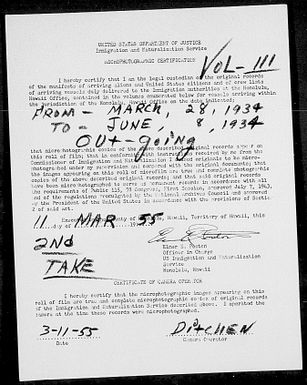 UNITED STATES DEPARTMENT OF JUSTICE
Immigration and Naturalization Service
MICROPHOTOGRAPHIC CERTIFICATION
VOL-III
I hereby certify that I am the legal custodian of the original records
of the manifests of arriving aliens and United States citizens and of crew lists
of arriving vessels duly delivered to the Immigration authorities at the Honolulu,
Hawaii Office, contained in the volumes enumerated below for vessels arriving within
the jurisdiction of the Honolulu, Hawaii Office on the date indicated;
FROM - MARCH 28, 1934
TO - JUNE, 8, 1934
Out-going
that microphotographic copies of the above described original records appear on
this roll of film; that in conformity with instructions received by me from the
Commissioner of Immigration and Naturalization I caused originals to be micro-
photographed under my supervision and
the images appearing on this roll of microfilm are true and complete photographic
copies of the above described original records; and that said original records
have been microphotographed to serve as permanent records in accordance with all
the requirements of Public 115, 78 Congress, 1st Session, approved July 7, 1943,
and of the regulations promulgated by the National Archives Council and approved
by the President of the United States in accordance with the provisions of Secti-
on 2 of said
Honolulu, Hawaii, Territory of Hawaii, this
11 day of MAR 55
2ND
TAKE
Elmer B. Poston
Officer in Charge
US Immigration and Naturalization
Service
Honolulu, Hawaii
CERTIFICATE OF CAMERA OPERATOR
I hereby certify that the microphotographic images appearing on this
roll of film are true and complete microphotographic copies of original records
of the Immigration and Naturalization Service described above. I operated the
camera at the time these records were microphotographed.
3-11-55
Date
DITCHEN
Camera Operator